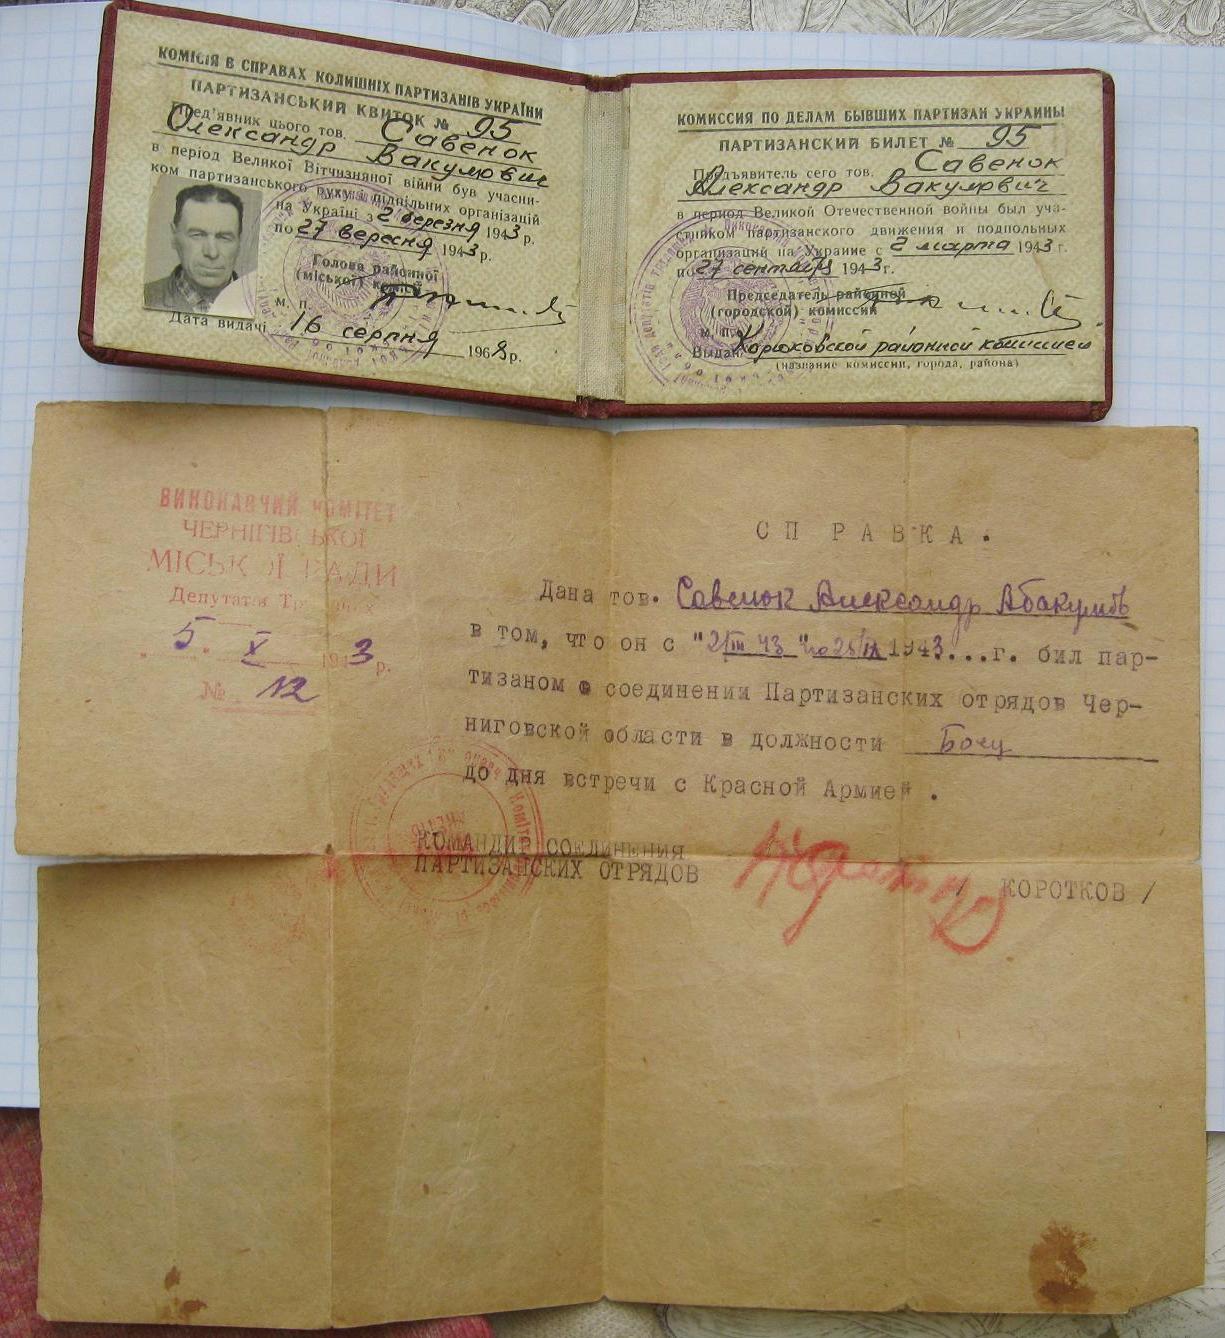 КОМІСІЯ В СПРАВАХ КОЛИШНІХ ПАРТИЗАНІВ УКРАЇНИ
ПАРТИЗАНСЬКИЙ КВИТОК № 95
Пред'явник цього тов. Савенок
Олександр Вакулович
в період Великої Вітчизняної війни був учасни-
ком партизанського руху і підпільних організацій
на Україні з 2 березня 1943 р.
по 27 вересня 1943 р.
Голова районної
(міської) комісії
М. П.
Дата видачі 16 серпня 1968 р.
КОМИССИЯ ПО ДЕЛАМ БЫВШИХ ПАРТИЗАН УКРАИНЫ
ПАРТИЗАНСКИЙ БИЛЕТ № 95
Предъявитель сего тов. Савенок
Александр Вакулович
в период Великой Отечественной войны был уча-
стником партизанского движения и подпольных
организаций на Украине с 2 марта 1943 г.
по 27 сентября 1943 г.
Председатель районной
(городской) комиссии
М. П.
Выдан Корюковской районной комиссией
(название комиссии, города, района)
ВИКОНАВЧИЙ КОМІТЕТ
ЧЕРНІГІВСЬКОЇ
МІСЬКОЇ РАДИ
Депутатів Трудящих
5. X 1943 р.
№ 12
СПРАВКА.
Дана тов. Савенок Александр Абакумов
в том, что он с "2/III 43 "по 25/IX 1943....г. бил пар-
тизаном в соединении Партизанских отрядов Чер-
ниговской области в должности Боец
до дня встречи с Красной Армией .
КОМАНДИР СОЕДИНЕНИЯ
ПАРТИЗАНСКИХ ОТРЯДОВ / КОРОТКОВ /